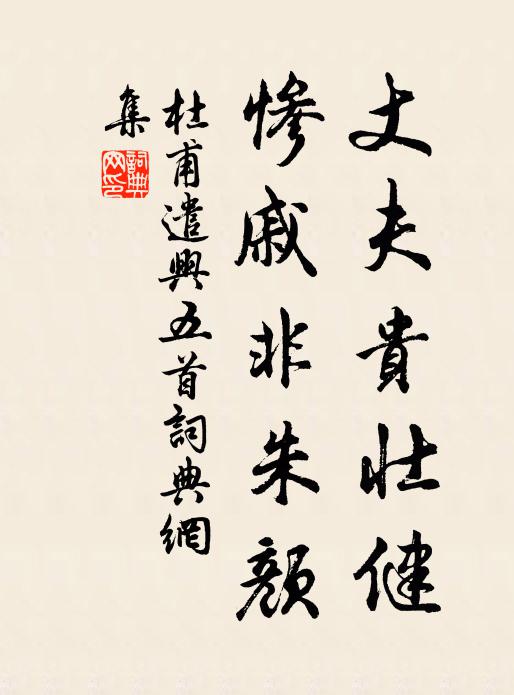 丈夫貴壯健
慘戚非朱顏
杜甫遣興五首詞典網
集
詞典網印